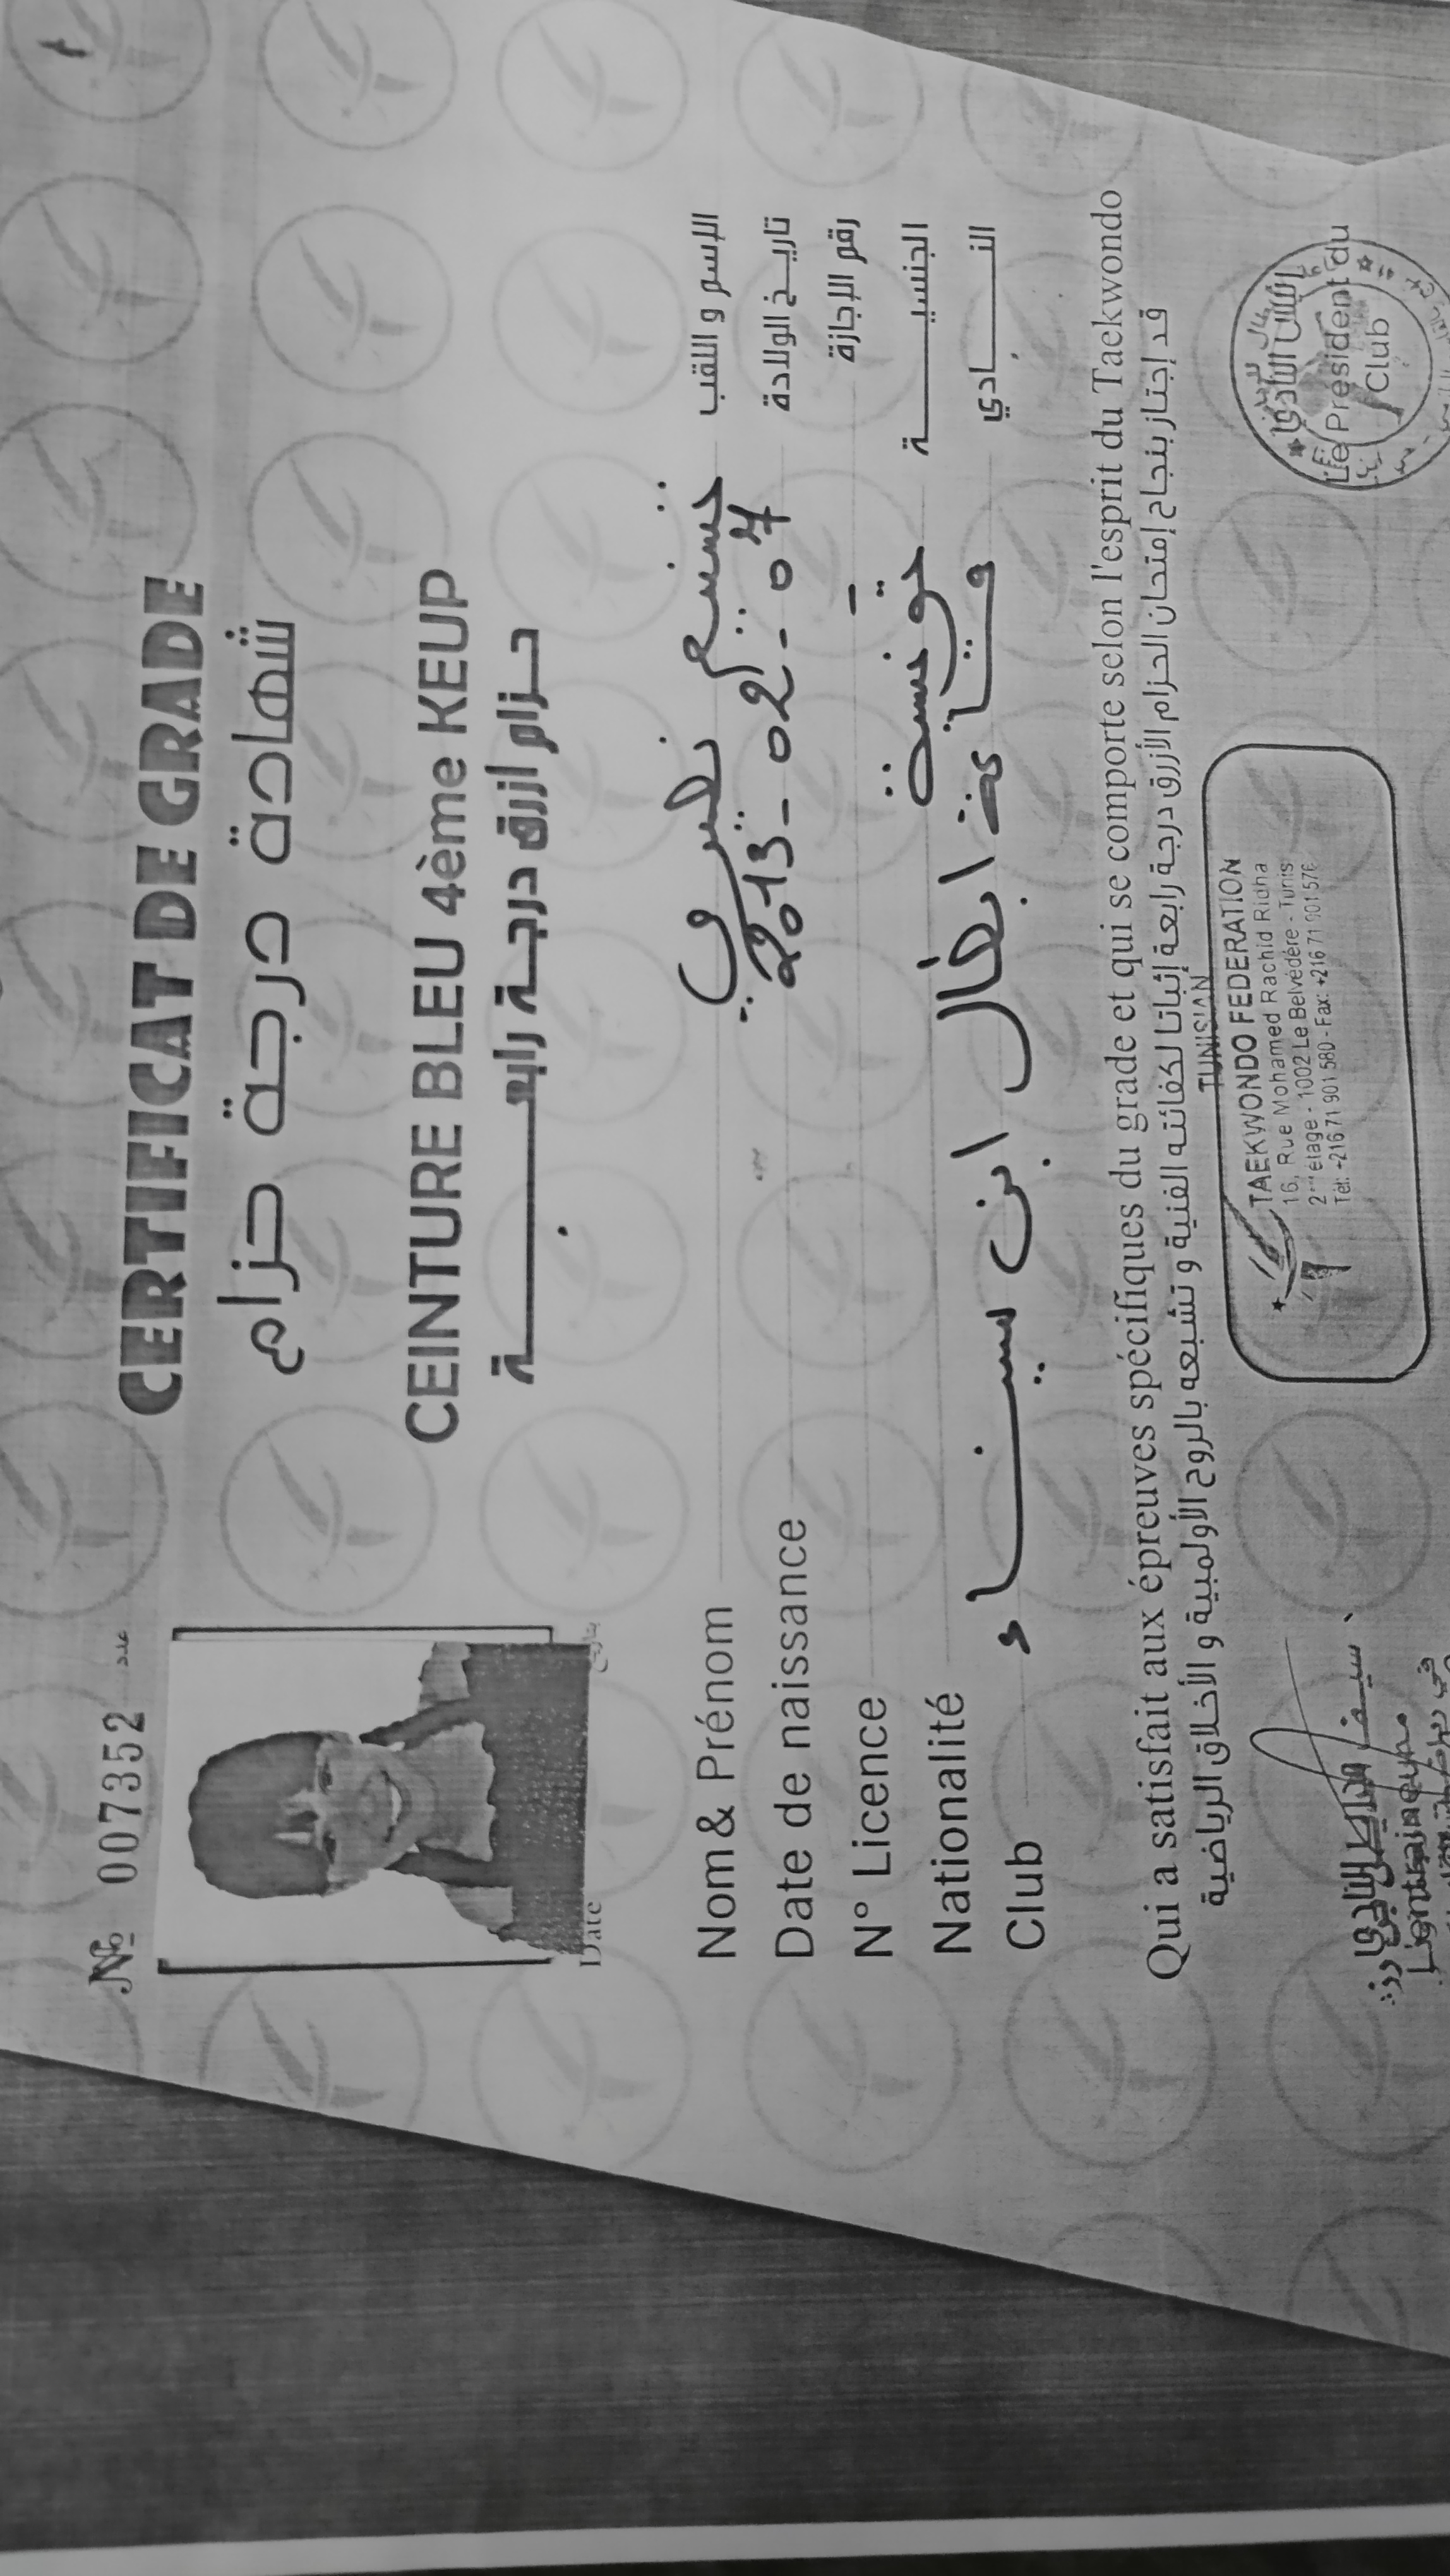 № 007352 عدد
CERTIFICAT DE GRADE
شهادة درجة حزام
CEINTURE BLEU 4ème KEUP
حـزام ازرق درجـة رابعـة
Date
Nom & Prénom تسنيم نصري الإسم و اللقب
Date de naissance 2013-02-04 تاريـخ الولادة
N° Licence رقم الإجازة
Nationalité تونسية الجنسيـة
Club ابطال ابن سيناء النـادي
Qui a satisfait aux épreuves spécifiques du grade et qui se comporte selon l'esprit du Taekwondo
قد إجتاز بنجاح إمتحان الحزام الأزرق درجة رابعة إثباتا لكفائته الفنية و تشبعه بالروح الأولمبية و الأخلاق الرياضية
TUNISIAN
TAEKWONDO FEDERATION
16, Rue Mohamed Rachid Ridha
2ème étage - 1002 Le Belvédère - Tunis
Tél: +216 71 901 580 - Fax: +216 71 901 576
رئيس النادي
Le Président du
Club